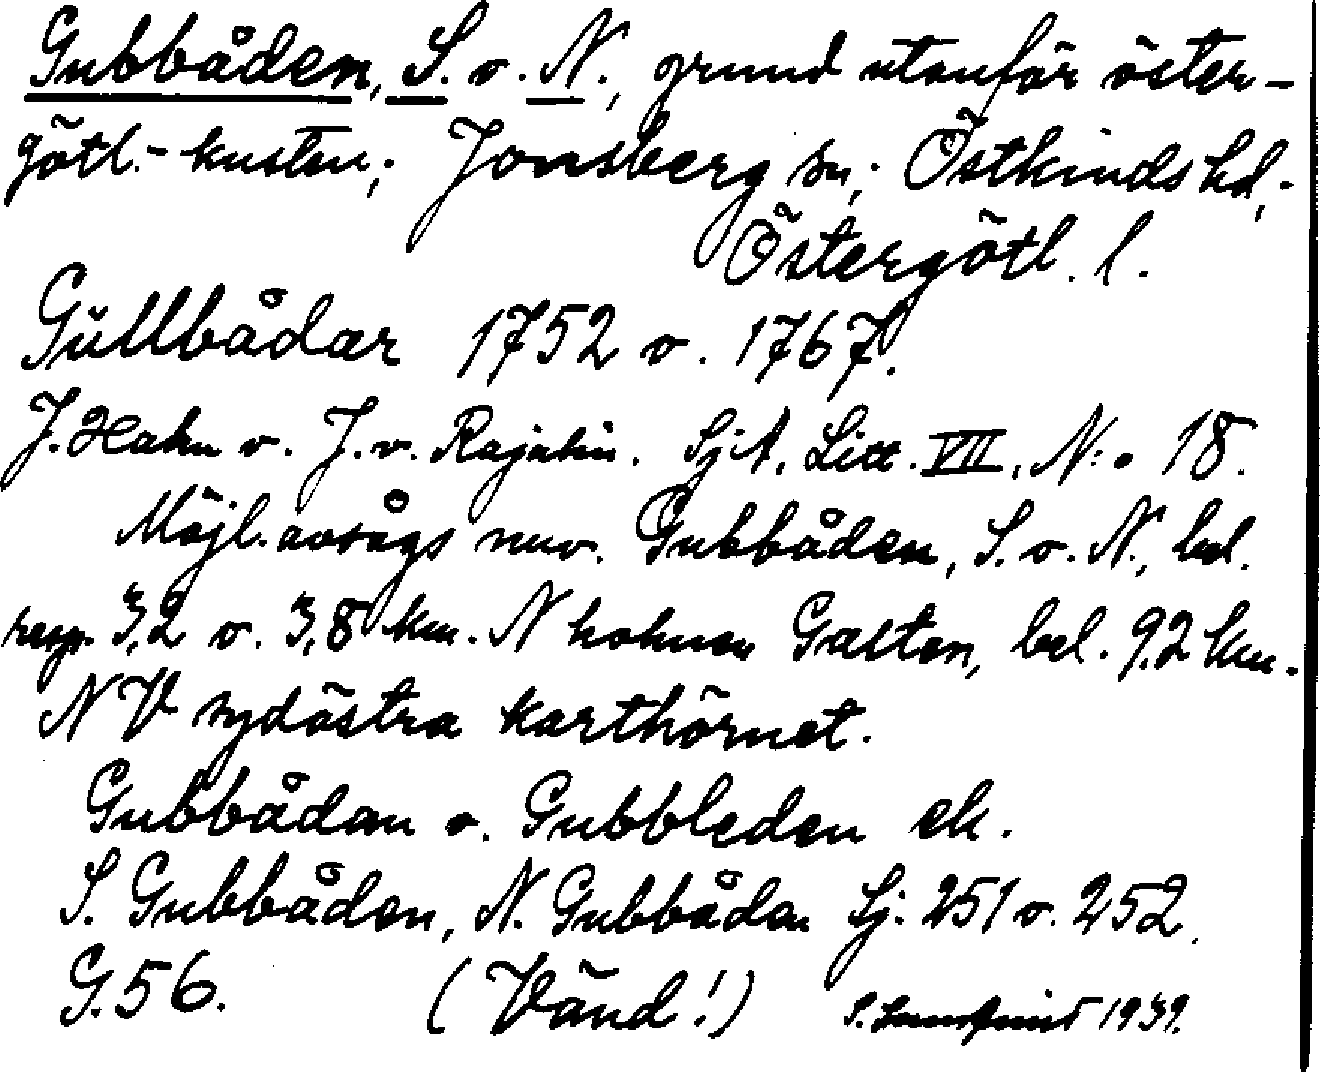 Gubbåden, S. o. N., grund utanför öster-
götl.-kusten; Jonsberg sn; Östkinds hd;
Östergötl. l.
Güllbådar 1752 o. 1767.
J. Hahn o. J. v. Rajalin. SjA. Litt. VII, N:o 18.
Möjl. avsågs nuv. Gubbåden, S. o. N., bel.
resp. 3,2 o. 3,8 km. N holmen Galten, bel. 9,2 km.
NV sydöstra karthörnet.
Gubbådan o. Gubbleden ek.
S. Gubbåden, N. Gubbåden Sj. 251 o. 252.
G. 56. (Vänd!) S. 1939.